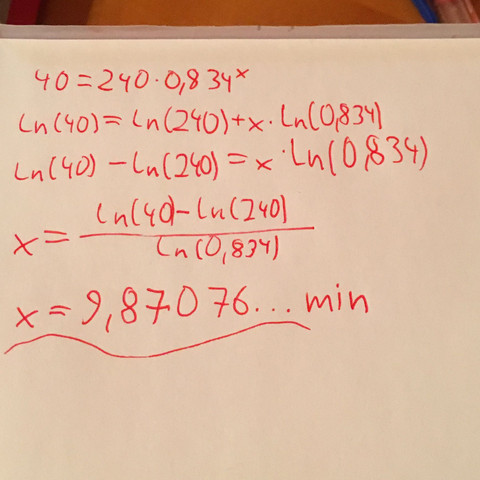 40 = 240 · 0,834^x
Ln(40) = Ln(240) + x · Ln(0,834)
Ln(40) - Ln(240) = x · Ln(0,834)
x = (Ln(40) - Ln(240)) / Ln(0,834)
x = 9,87076... min